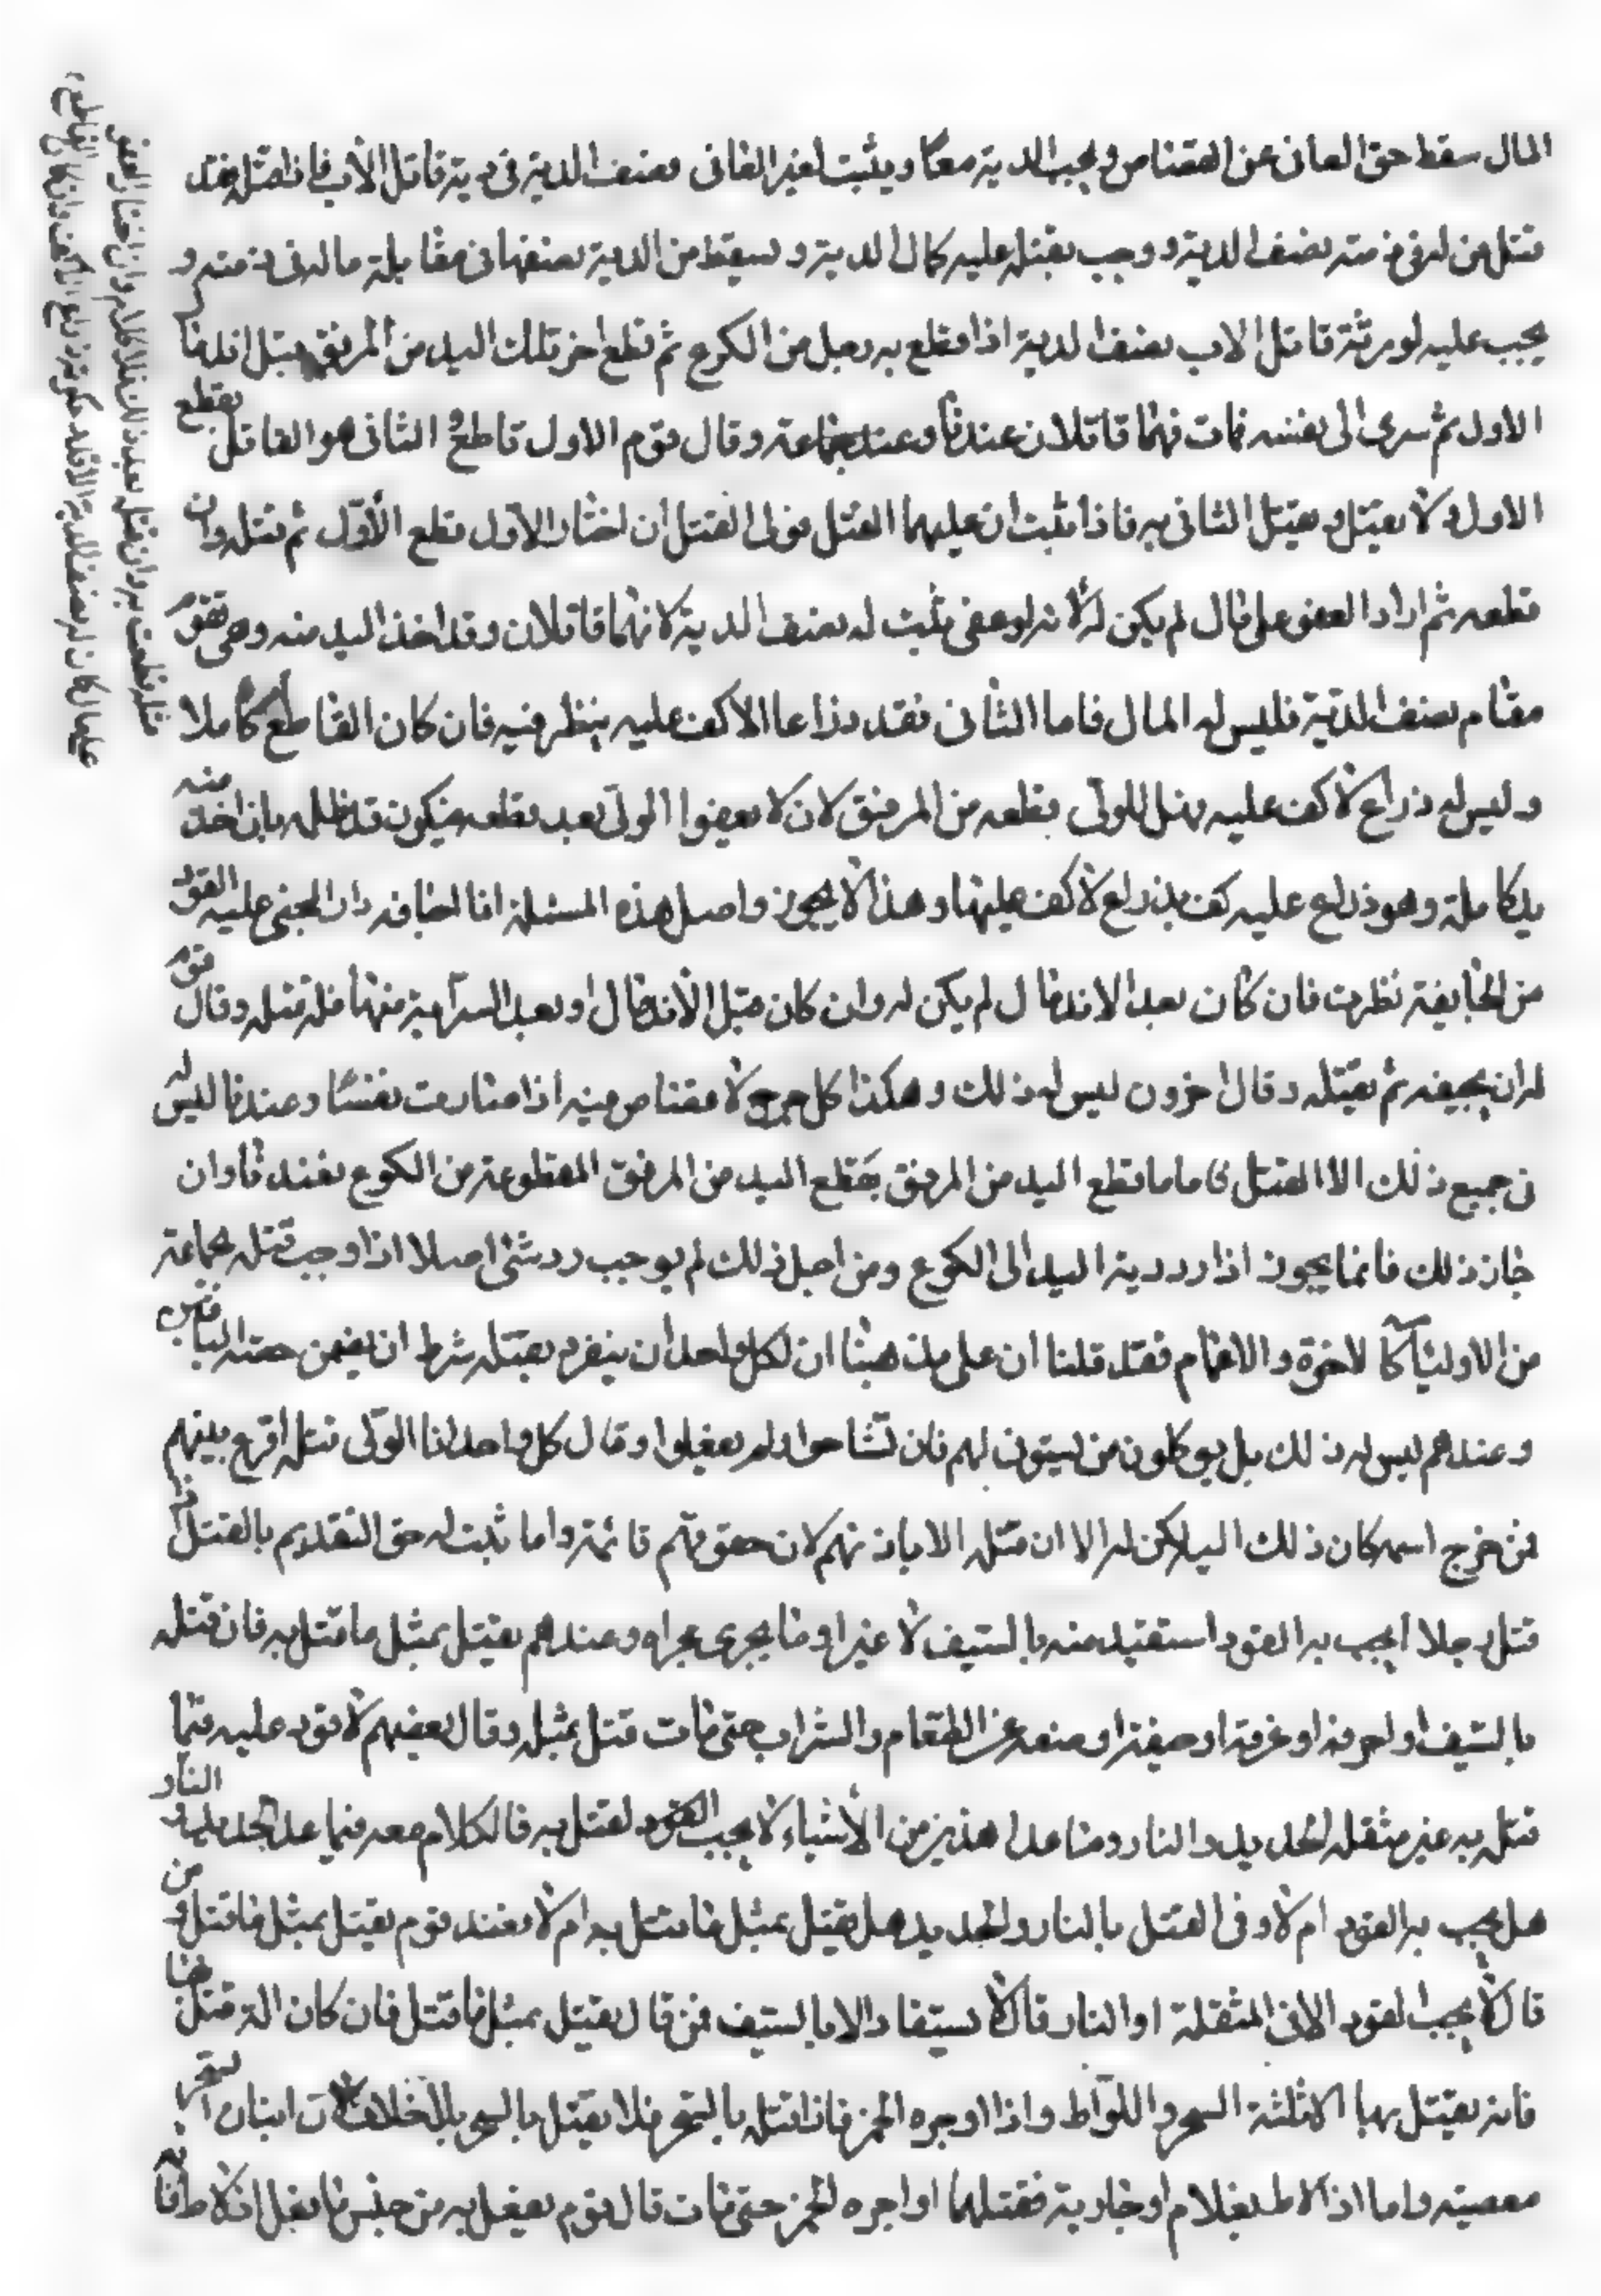 المال سقط حق العافى عن القصاص ويجب الدية معا ويثبت لغير العافى نصف الدية فى دية قاتل الأب فاذا قتله فقد
قتل من له فى ذمته نصف الدية ووجب بقتله عليه كمال الدية وسقط من الدية نصفها فى مقابلة ماله فى ذمته و
يجب عليه لورثة قاتل الاب نصف الدية اذا قطع يد رجل من الكوع ثم قطع اخر تلك اليد من المرفق قبل اندمال
الاول ثم سرى الى نفسه فمات فهما قاتلان عندنا وعند جماعة وقال قوم الاول قاطع والثانى هو القاتل يقطع
الاول ولا يقتل ويقتل الثانى به فاذا ثبت ان عليهما القتل فولى القتل ان اختار الاول قطع الأول ثم قتله وان
قطعه ثم اراد العفو على مال لم يكن له لأنه لو عفى ثبت له نصف الدية لانهما قاتلان وقد اخذ اليد منه وهى تقوم
مقام نصف الدية فليس له المال فاما الثانى فقد قطع ذراعا لا كف عليه ينظر فيه فان كان القاطع كاملا
وليس له ذراع لا كف عليه فهل للولى قطعه من المرفق لان لا يعفوا الولى بعد قطعه فيكون قد ظلمه بان اخذ منه
يدا كاملة وهو ذراع عليه كف بذراع لا كف عليها وهذا لا يجوز واصل هذه المسئلة اذا اجافه وان المجنى عليه القود
من الجايفة نظرت فان كان بعد الاندمال لم يكن له وان كان قبل الاندمال او بعد السراية منها فله قتله وقال قوم
له ان يجيفه ثم يقتله وقال اخرون ليس له ذلك وهكذا كل جرح لا قصاص فيه اذا صارت نفسا وعندنا ليس له
فى جميع ذلك الا القتل فاما ما قطع اليد من المرفق بقطع اليد من المرفق المقطوعة من الكوع فعندنا وان
جاز ذلك فانما يجوز اذا رد دية اليد الى الكوع ومن اصل ذلك لم يوجب رد شئ اصلا اذا وجب قتله لجماعة
من الاولياء كالاخوة والاعمام فقد قلنا ان على مذهبنا ان لكل واحد أن ينفرد بقتله بشرط ان يضمن حصته الباقين
وعندهم ليس له ذلك بل يوكلون من يستوفى لهم فان تشاحوا ولم يفعلوا وقال كل واحد انا الولى قتله اقرع بينهم
فمن خرج اسمه كان ذلك اليه لكن له الا ان قتله الا باذنهم لان حقوقهم قائمة واما ثبت له حق التقديم بالقتل اذا
قتل رجلا يجب به القود استقيد منه بالسيف لا غير او ما يجرى مجراه وعندهم يقتل بمثل ما قتل به فان قتله
بالسيف او احرقه او غرقه او منعه عن الطعام والشراب حتى مات قتل بمثله وقال بعضهم لا قود عليه فيما
قتل به غير مثقلة الحديد والنار وما عدا هذين من الأشياء لا يجب القود لقتل به فالكلام معه فيما عدا الحديد والنار
هل يجب به القود ام لا وفى القتل بالنار والحديد هل يقتل بمثل ما قتل به ام لا فعند قوم يقتل بمثل ما قتل ومن
قال لا يجب القود الا فى المثقلة او النار قال لا يستقاد الا بالسيف فمن قال يقتل بمثل ما قتل فان كان الة قتل
فانه يقتل بها الا ثلثة السحر واللواط واذا اوجره الخمر فاذا قتله بالسحر فلا يقتل بالسحر بلا خلاف لان اتيان السحر
معصية واما اذا لاط بغلام او جارية فقتلهما او اجره الخمر حتى مات قال قوم يفعل به من جنس ما يفعل اذ لاط